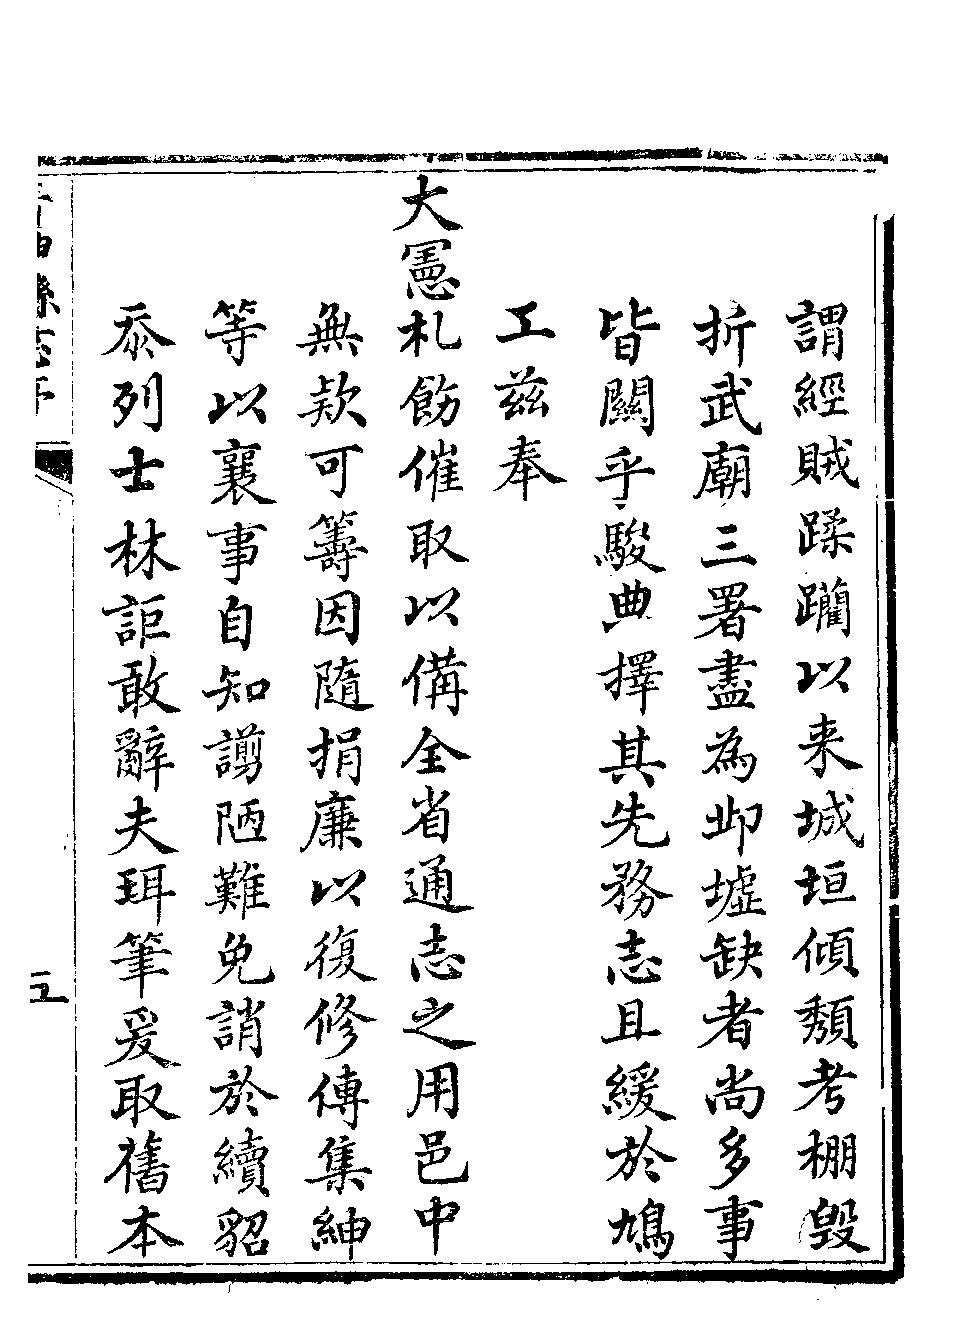 謂經賊蹂躪以来城垣傾頽考棚毁
折武廟三署盡為邱墟缺者尚多事
皆關乎駿典擇其先務志且緩於鳩
工兹奉
大憲札飭催取以備全省通志之用邑中
無款可籌因隨捐廉以復修傳集紳
等以襄事自知謭陋難免誚於續貂
忝列士林詎敢辭夫珥筆爰取舊本
縣志序